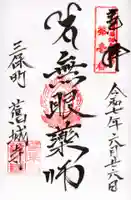 奉拝
令和七年六月廿六日
岩無眼薬師
三保町
舊城寺